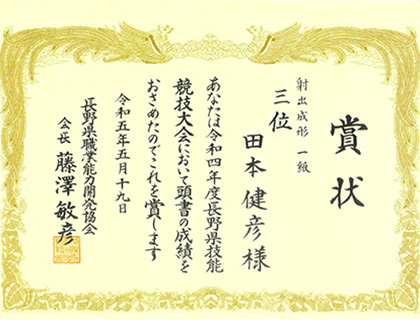 賞状
射出成形 一級
三位
田本健彦様
あなたは令和四年度長野県技能
競技大会において頭書の成績を
おさめたのでこれを賞します
令和五年五月十九日
長野県職業能力開発協会
会長 藤澤敏彦